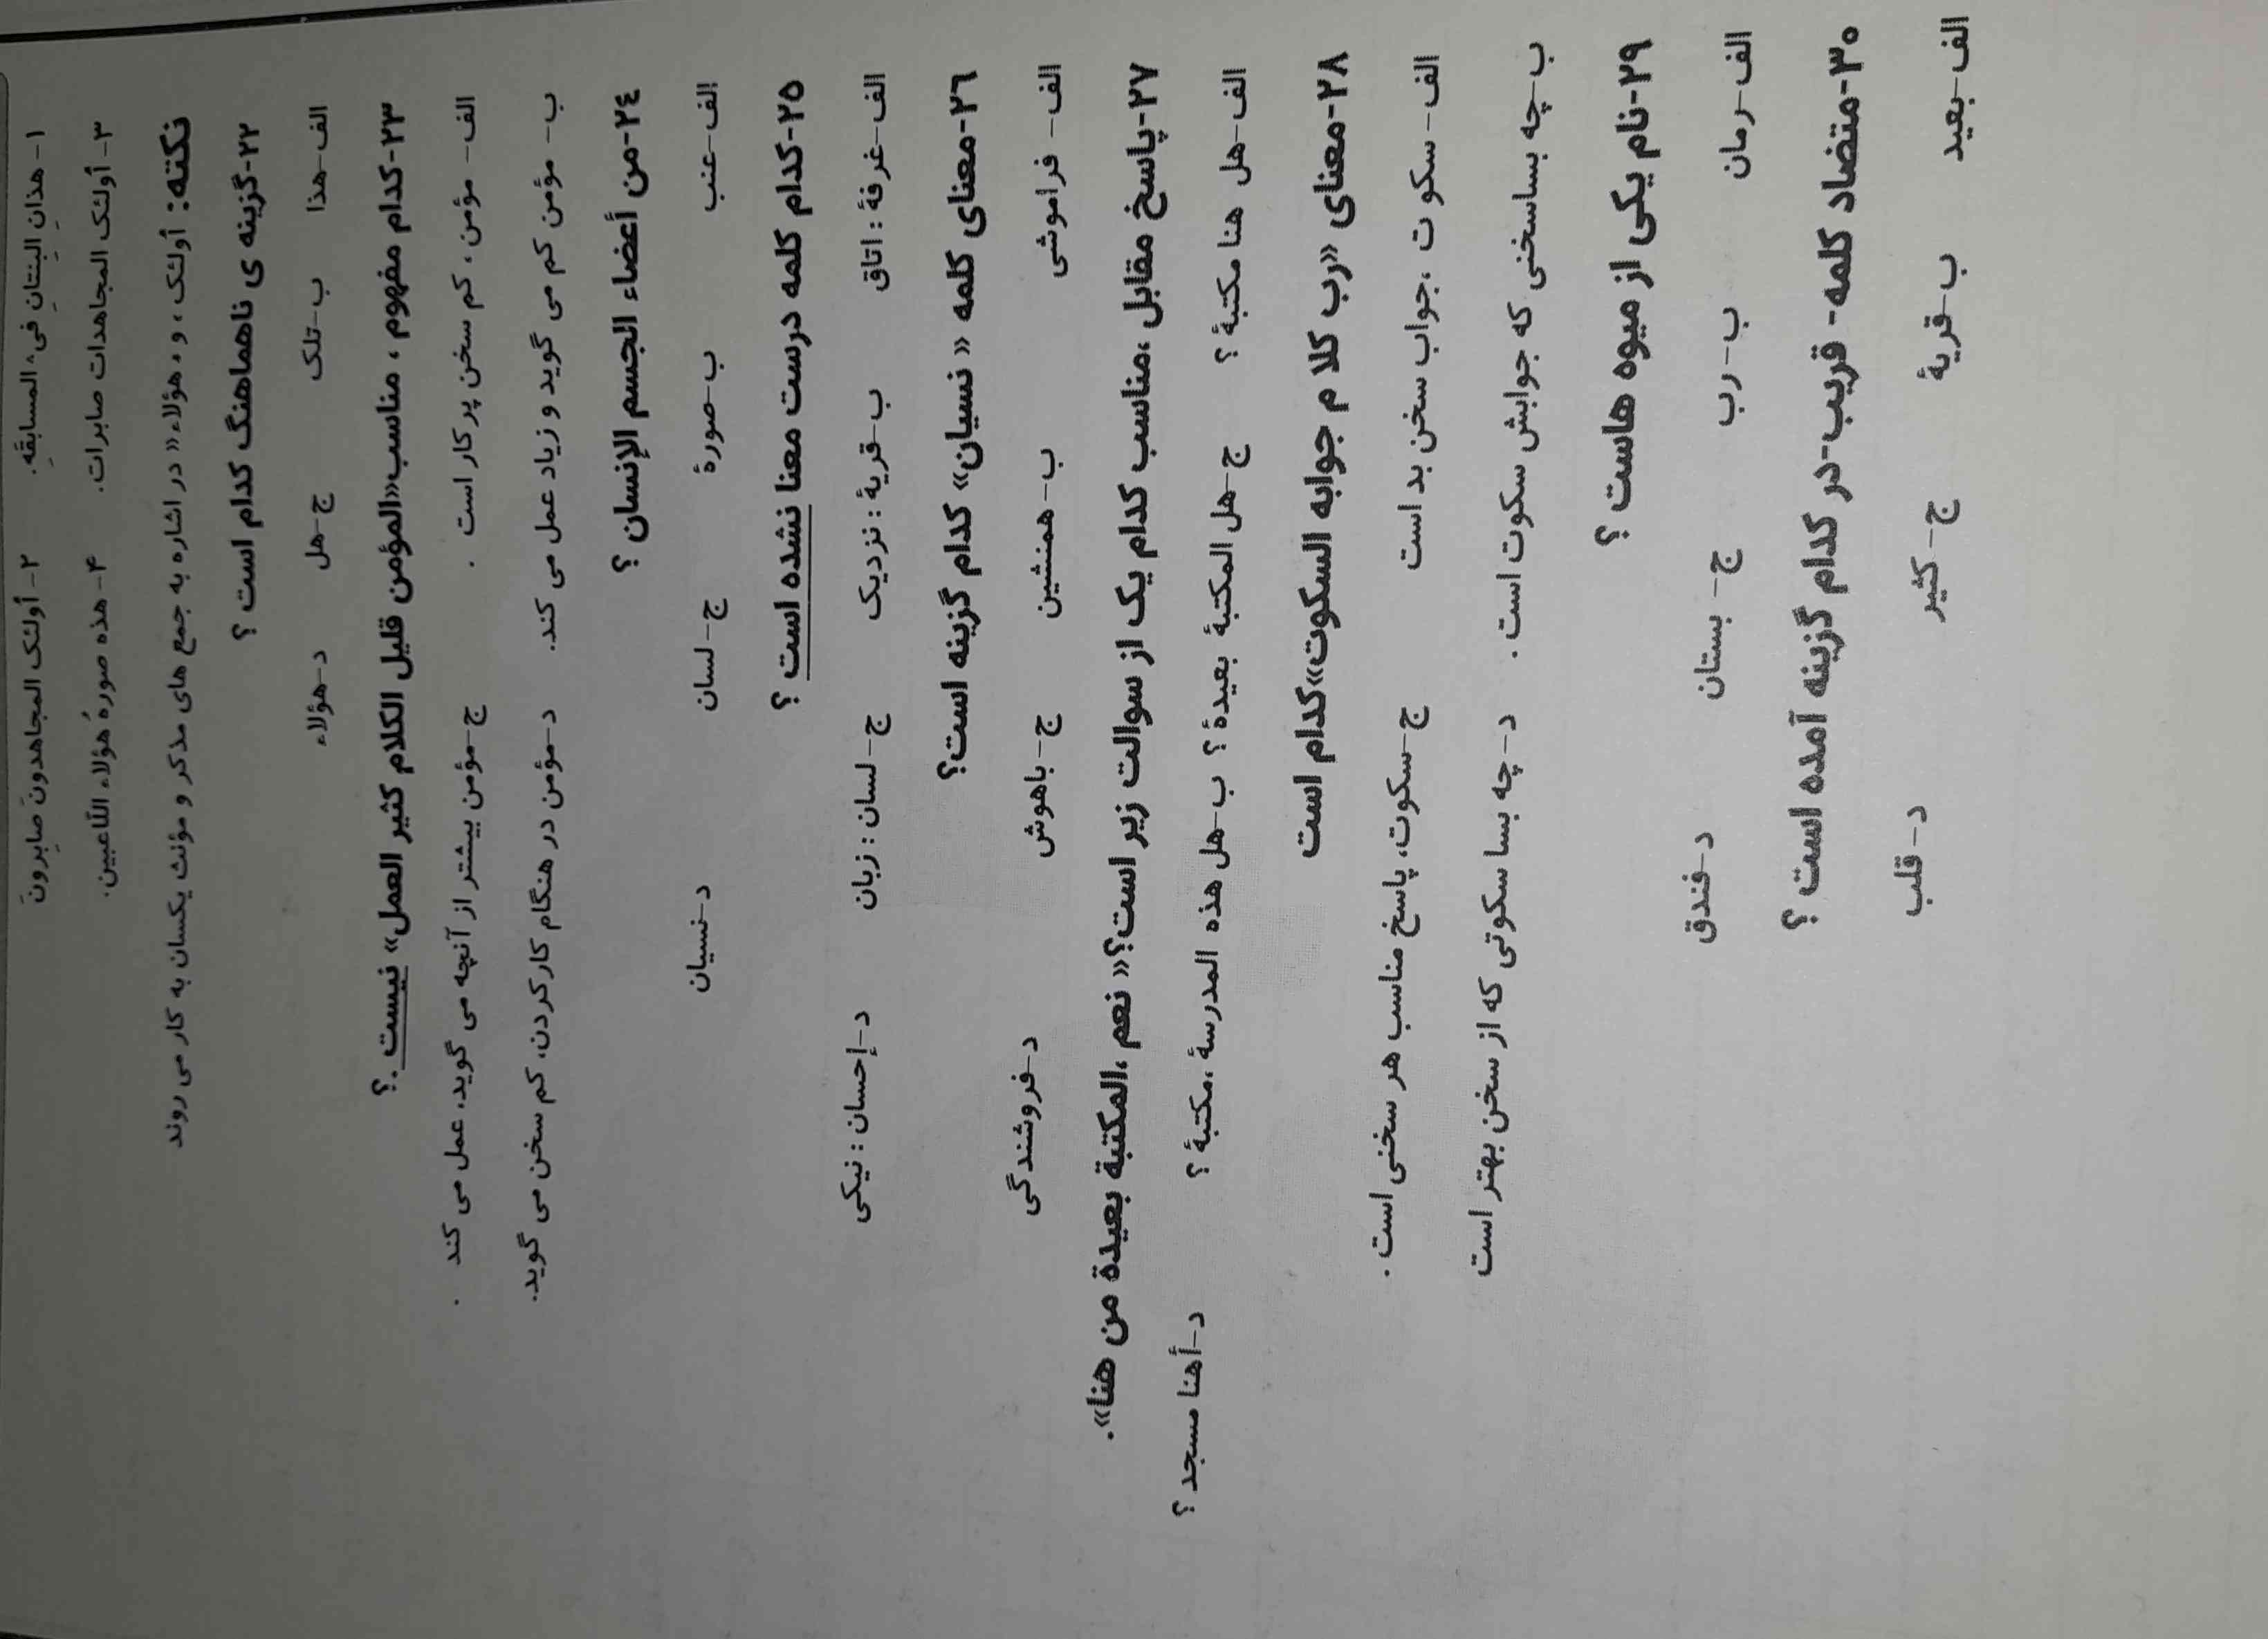 ۱- هذانِ البِنتانِ فی المسابقَةِ. ۲- أولئک المجاهدونَ صابِرونَ
۳- أولئک المجاهدات صابرات. ۴- هذه صورةُ هؤلاء اللّاعبین.
نکته: أولئک ، و ، هؤلاء» در اشاره به جمع های مذکر و مؤنث یکسان به کار می روند
۲۲-گزینه ی ناهماهنگ کدام است ؟
الف-هذا ب-تلک ج-هل د-هؤلاء
۲۳-کدام مفهوم ، مناسب«المؤمن قلیل الکلام کثیر العمل» نیست .؟
الف- مؤمن، کم سخن پر کار است . ج-مؤمن بیشتر از آنچه می گوید، عمل می کند .
ب- مؤمن کم می گوید و زیاد عمل می کند. د-مؤمن در هنگام کارکردن، کم سخن می گوید.
۲٤-من أعضاء الجسم الإنسان ؟
الف-عنب ب-صورة ج-لسان د-نسیان
۲۵-کدام کلمه درست معنا نشده است ؟
الف-غرفة : اتاق ب-قریة : نزدیک ج-لسان : زبان د-إحسان : نیکی
۲٦-معنای کلمه « نسیان» کدام گزینه است؟
الف- فراموشی ب-همنشین ج-باهوش د-فروشندگی
۲۷-پاسخ مقابل ،مناسب کدام یک از سوالت زیر است؟« نعم ،المکتبة بعیدة من هنا».
الف-هل هنا مکتبة ؟ ج-هل المکتبة بعیدة ؟ ب-هل هذه المدرسة ،مکتبة ؟ د-أهنا مسجد ؟
۲۸-معنای «رب کلا م جوابه السکوت»کدام است
الف- سکو ت ،جواب سخن بد است ج-سکوت، پاسخ مناسب هر سخنی است .
ب-چه بساسخنی که جوابش سکوت است . د-چه بسا سکوتی که از سخن بهتر است
۲۹-نام یکی از میوه هاست ؟
الف-رمان ب-رب ج- بستان د-فندق
۳۰-متضاد کلمه- قریب-در کدام گزینه آمده است ؟
الف-بعید ب-قریة ج-کثیر د-قلب